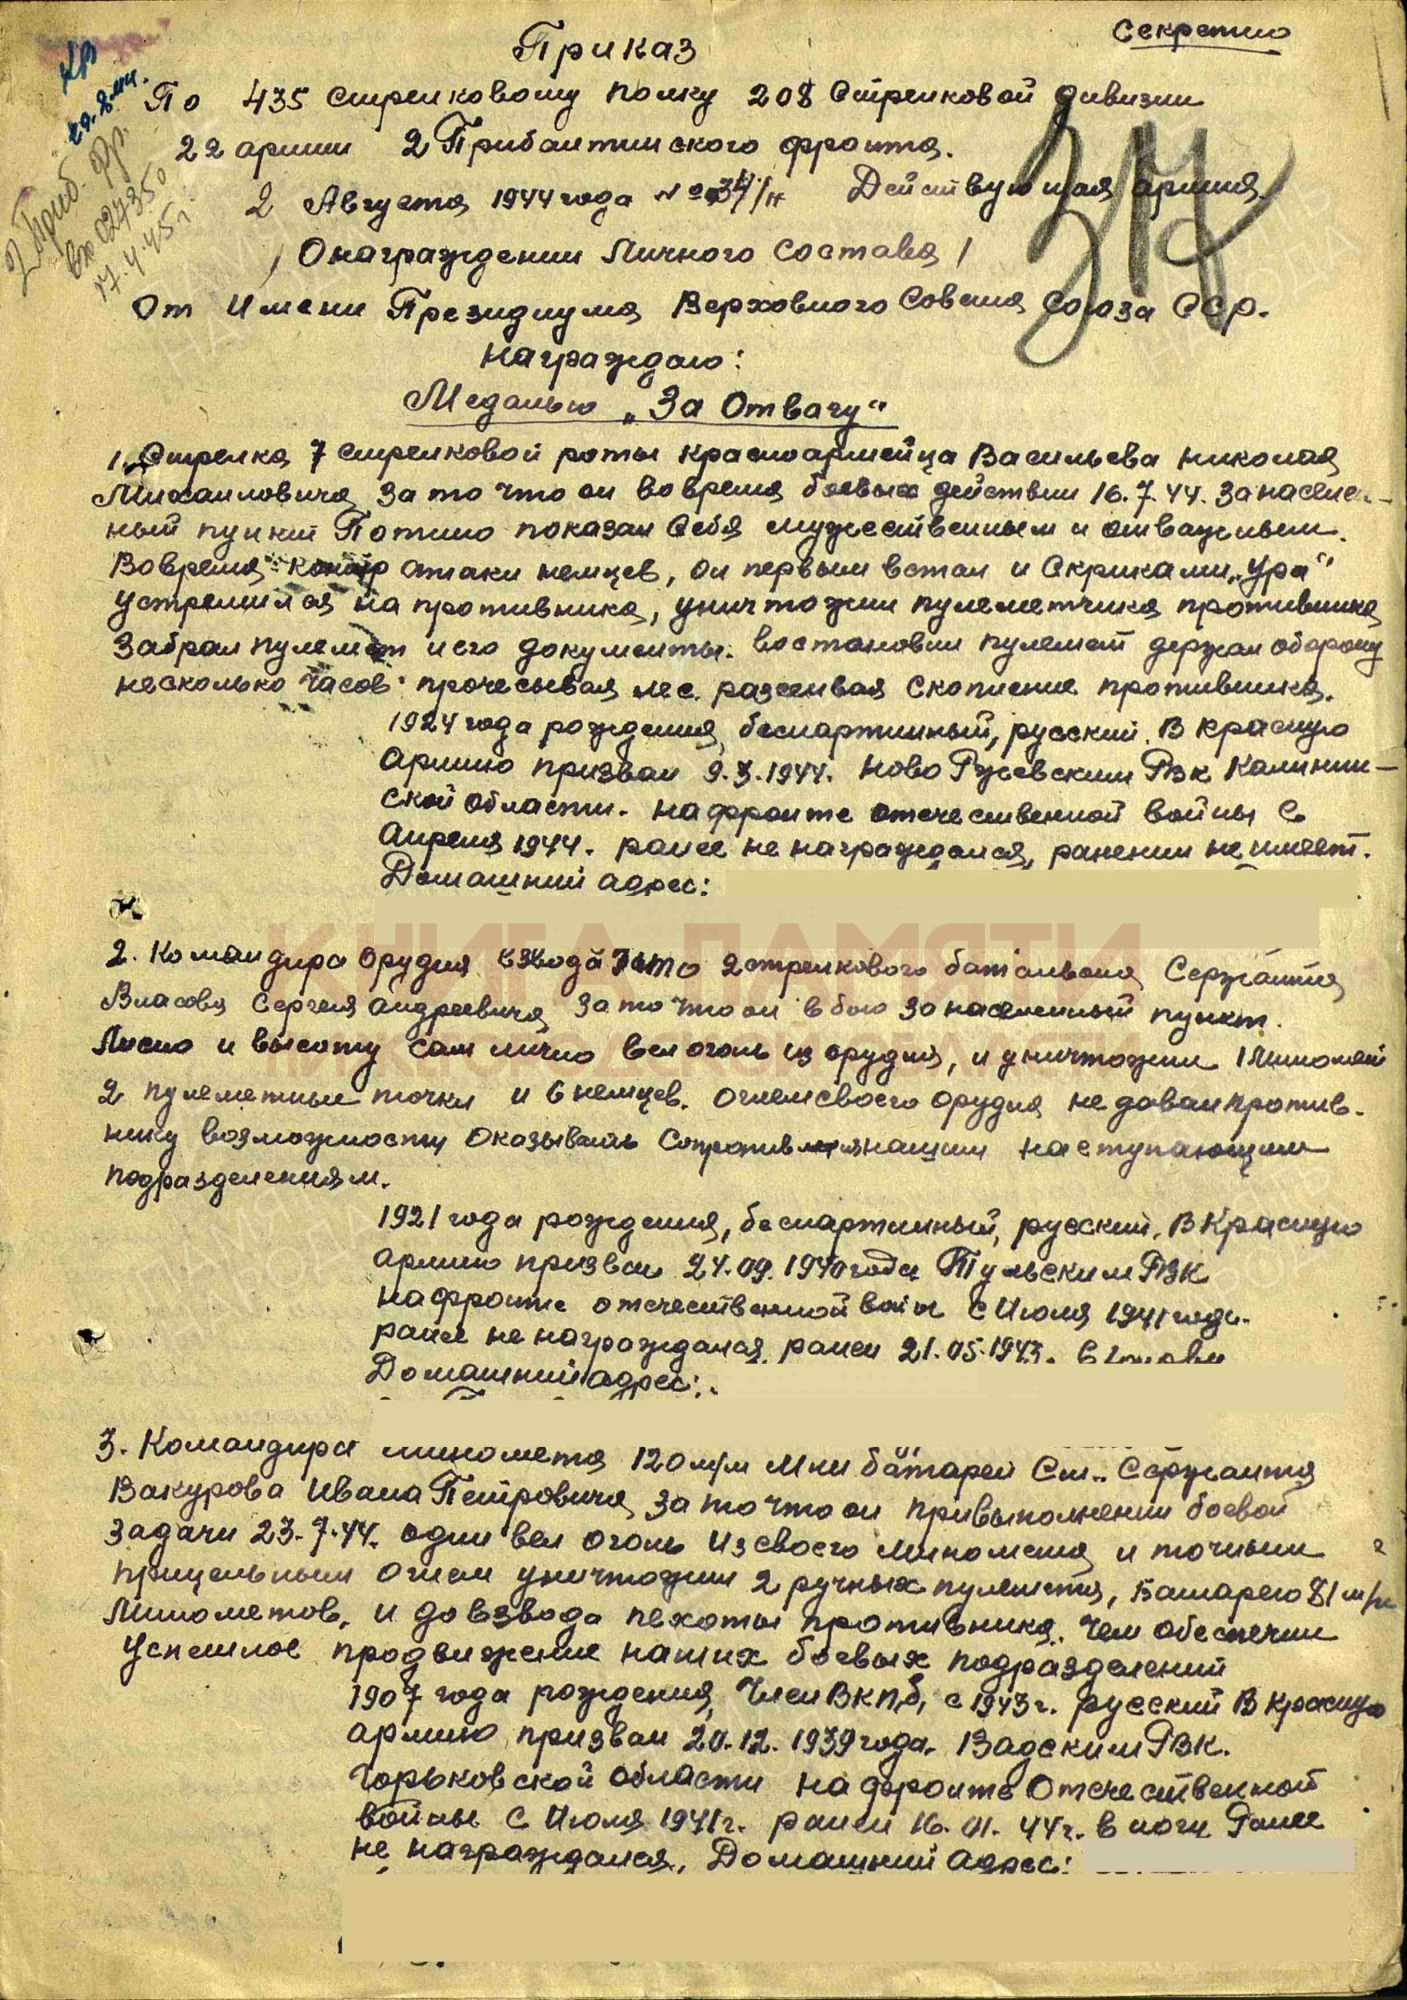 Секретно
Приказ
КВ
По 435 стрелковому полку 208 Стрелковой дивизии
22 армии 2 Прибалтийского фронта.
2 Августа 1944 года № 037/н Действующая армия.
2 Приб. Фр.
вх 02735
17.4.45 г.
/ О награждении Личного Состава /
От Имени Президиума Верховного Совета Союза ССР.
награждаю:
Медалью „За Отвагу“
1. Стрелка 7 стрелковой роты красноармейца Васильева Николая
Михаиловича за то что он во время боевых действии 16.7.44. за населен-
ный пункт Потино показал Себя мужественным и отважным.
Во время контр атаки немцев, он первым встал и Скриками „Ура“
устремился на противника, уничтожил пулеметчика противника
Забрал пулемет и его документы. востановил пулемет держал оборону
несколько часов прочесывая лес. разсеивая Скопление противника.
1924 года рождения, беспартийный, русский. В красную
Армию призван 9.3.1944. Ново Ржевским РВК Калинин-
ской области. на фронте отечественной войны с
Апреля 1944. ранее не награждался, ранении не имеет.
Домашний адрес:
КНИГА ПАМЯТИ
2. Командира Орудия взвода ПТО 2 стрелкового батальона Сержанта
Власова Сергея Андреевича за то что он в бою за населенный пункт
Лисно и высоту сам лично вел огонь из орудия, и уничтожил 1 Миномет
2 пулеметные точки и 6 немцев. Огнем своего Орудия не давал против-
нику возможности Оказывать Сопротивления нашим наступающим
подразделениям.
1921 года рождения, беспартийный, русский. В Красную
армию призван 24.09.1940 года Тульским РВК
на фронте отечественной войны с Июля 1941 года.
ранее не награждался, ранен 21.05.1943. в голову
Домашний адрес:
3. Командира миномета 120 м/м Мин батареи Ст. Сержанта
Вакурова Ивана Петровича за то что он привыполнении боевой
задачи 23.7.44. один вел огонь Из своего миномета и точным
прицельным Огнем уничтожил 2 ручных пулемета, Батарею 81 м/м
Минометов, и до взвода пехоты противника. Чем обеспечил
Успешное продвижение наших боевых подразделений
1907 года рождения, Член ВКПб, с 1943 г. русский В красную
армию призван 20.12.1939 года. Вадским РВК.
Горьковской области на фронте Отечественной
войны с Июля 1941 г. ранен 16.01.44 г. в ногу Ранее
не награждался, Домашний адрес: